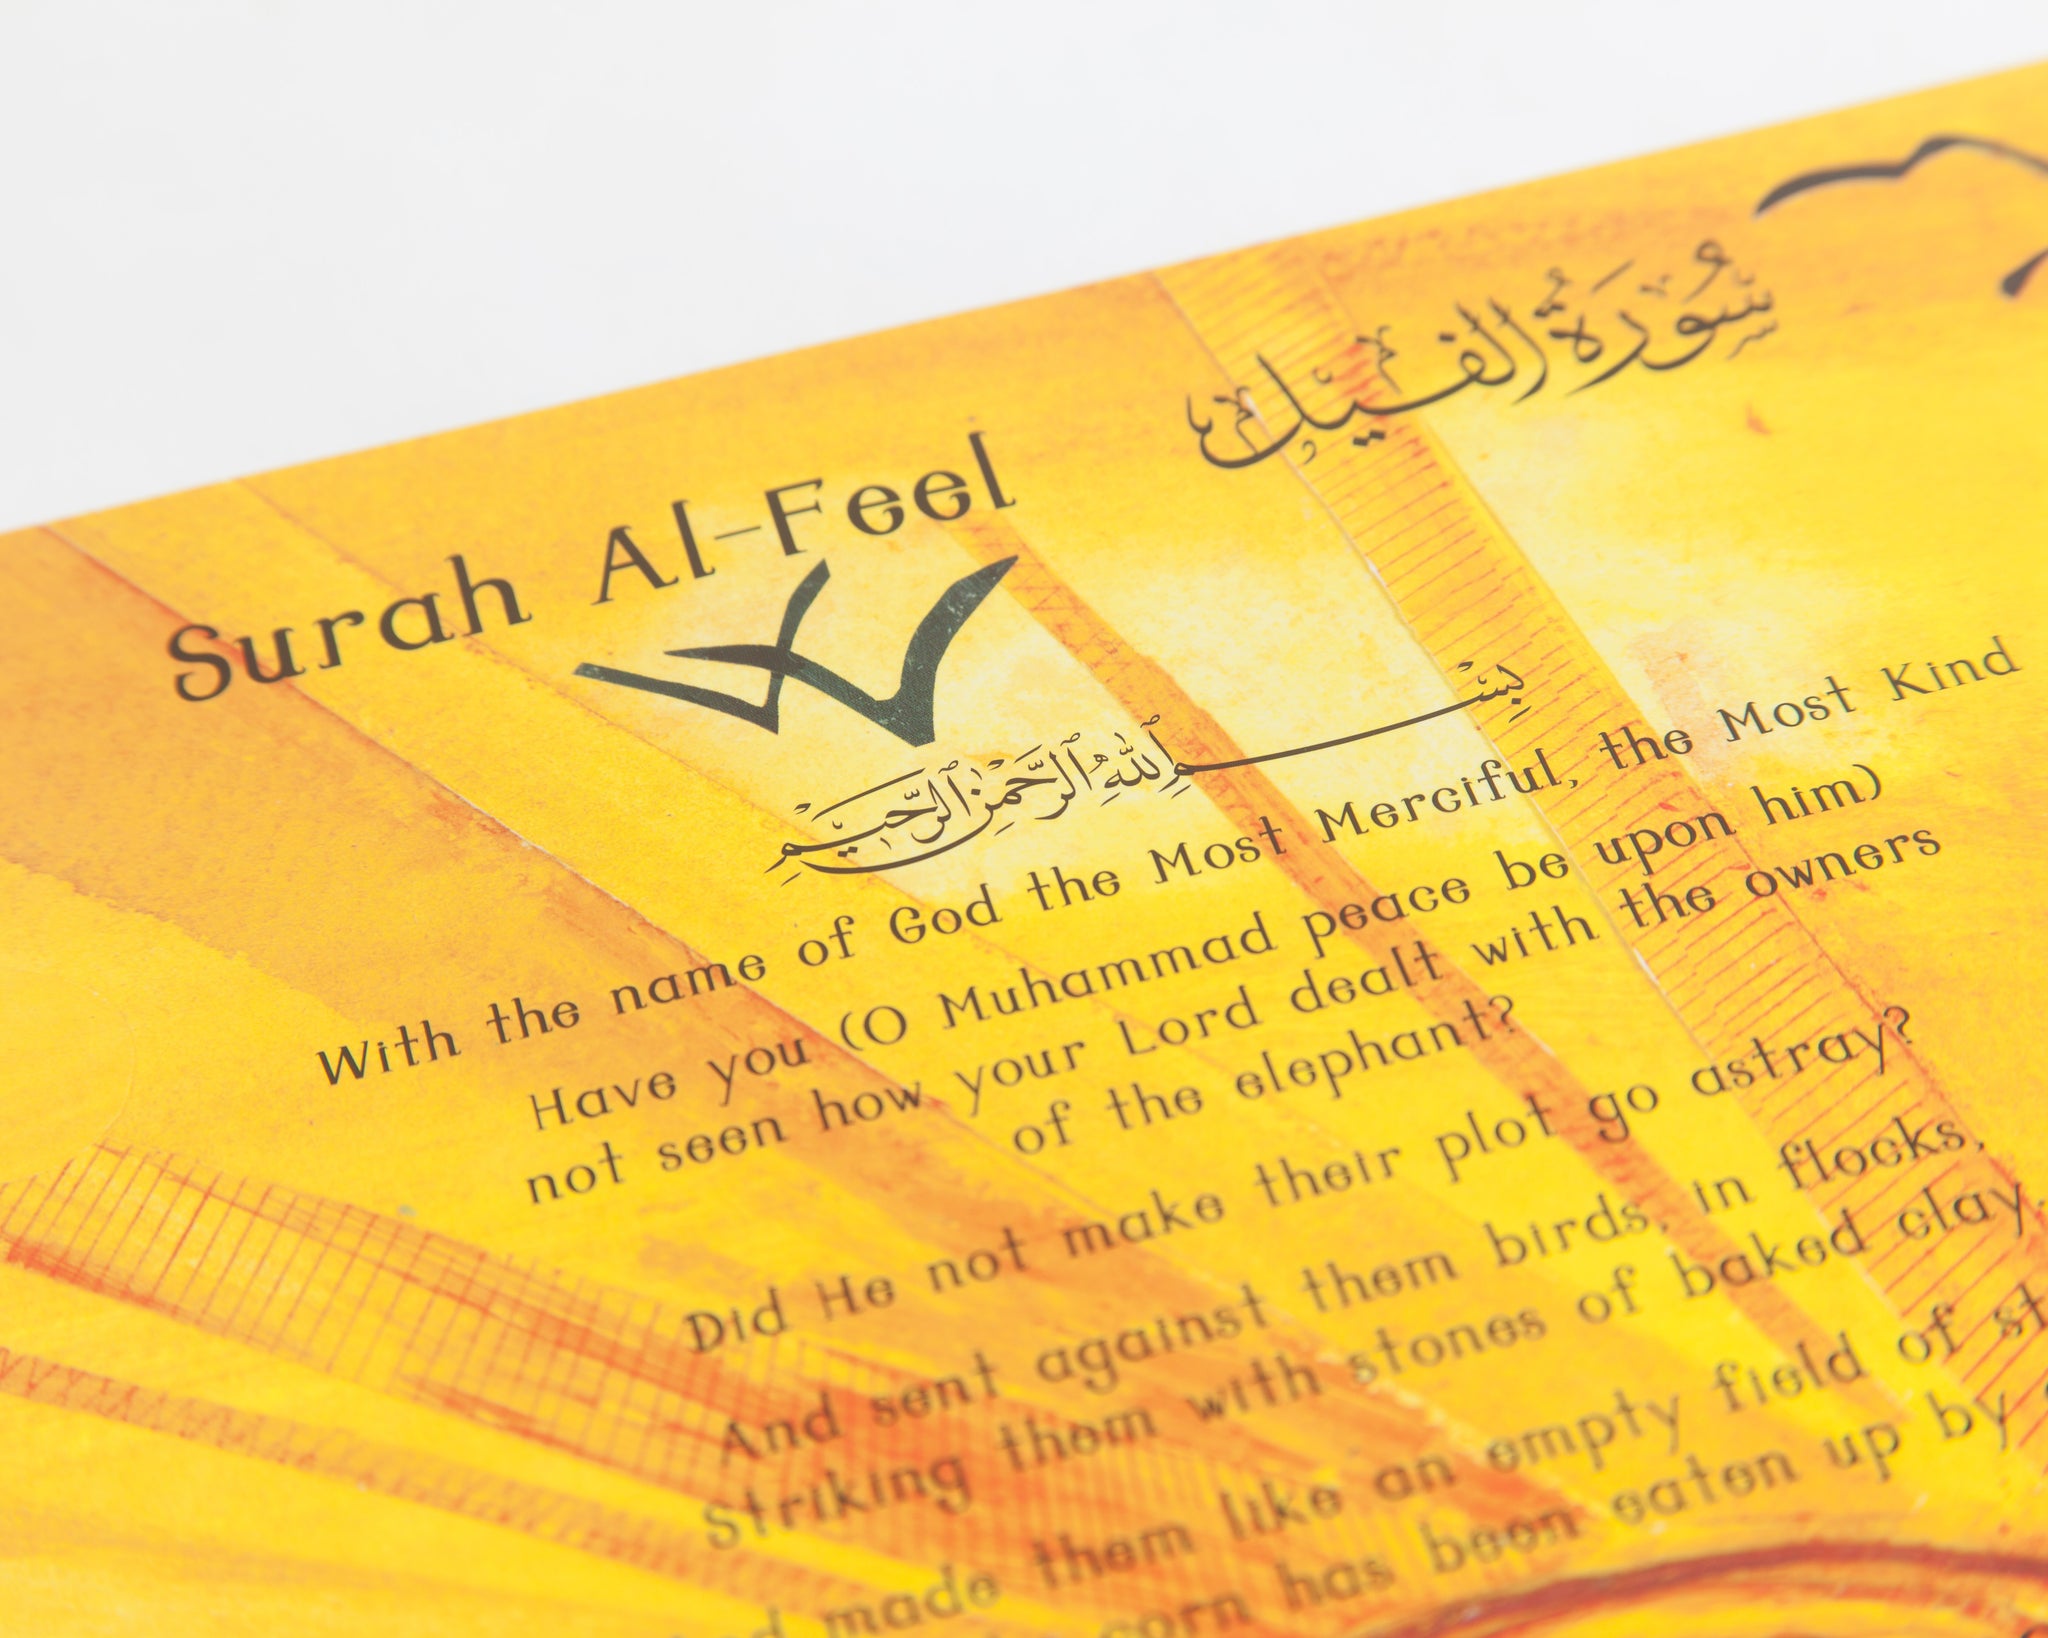 Surah Al-Feel
سُورَةُ الفِيل
بِسْمِ ٱللَّهِ ٱلرَّحْمَٰنِ ٱلرَّحِيمِ
With the name of God the Most Merciful, the Most Kind
Have you (O Muhammad peace be upon him)
not seen how your Lord dealt with the owners
of the elephant?
Did He not make their plot go astray?
And sent against them birds, in flocks,
Striking them with stones of baked clay.
made them like an empty field of
corn has been eaten up by